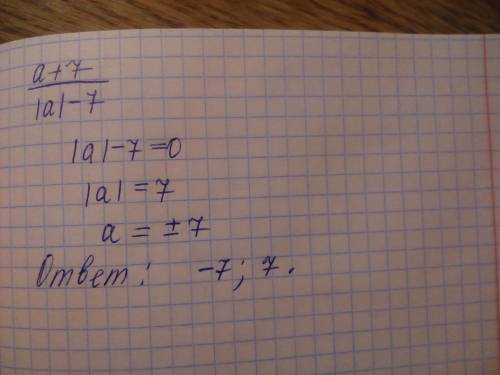 a+7
|a|-7
|a|-7=0
|a|=7
a=±7
Ответ: -7; 7.